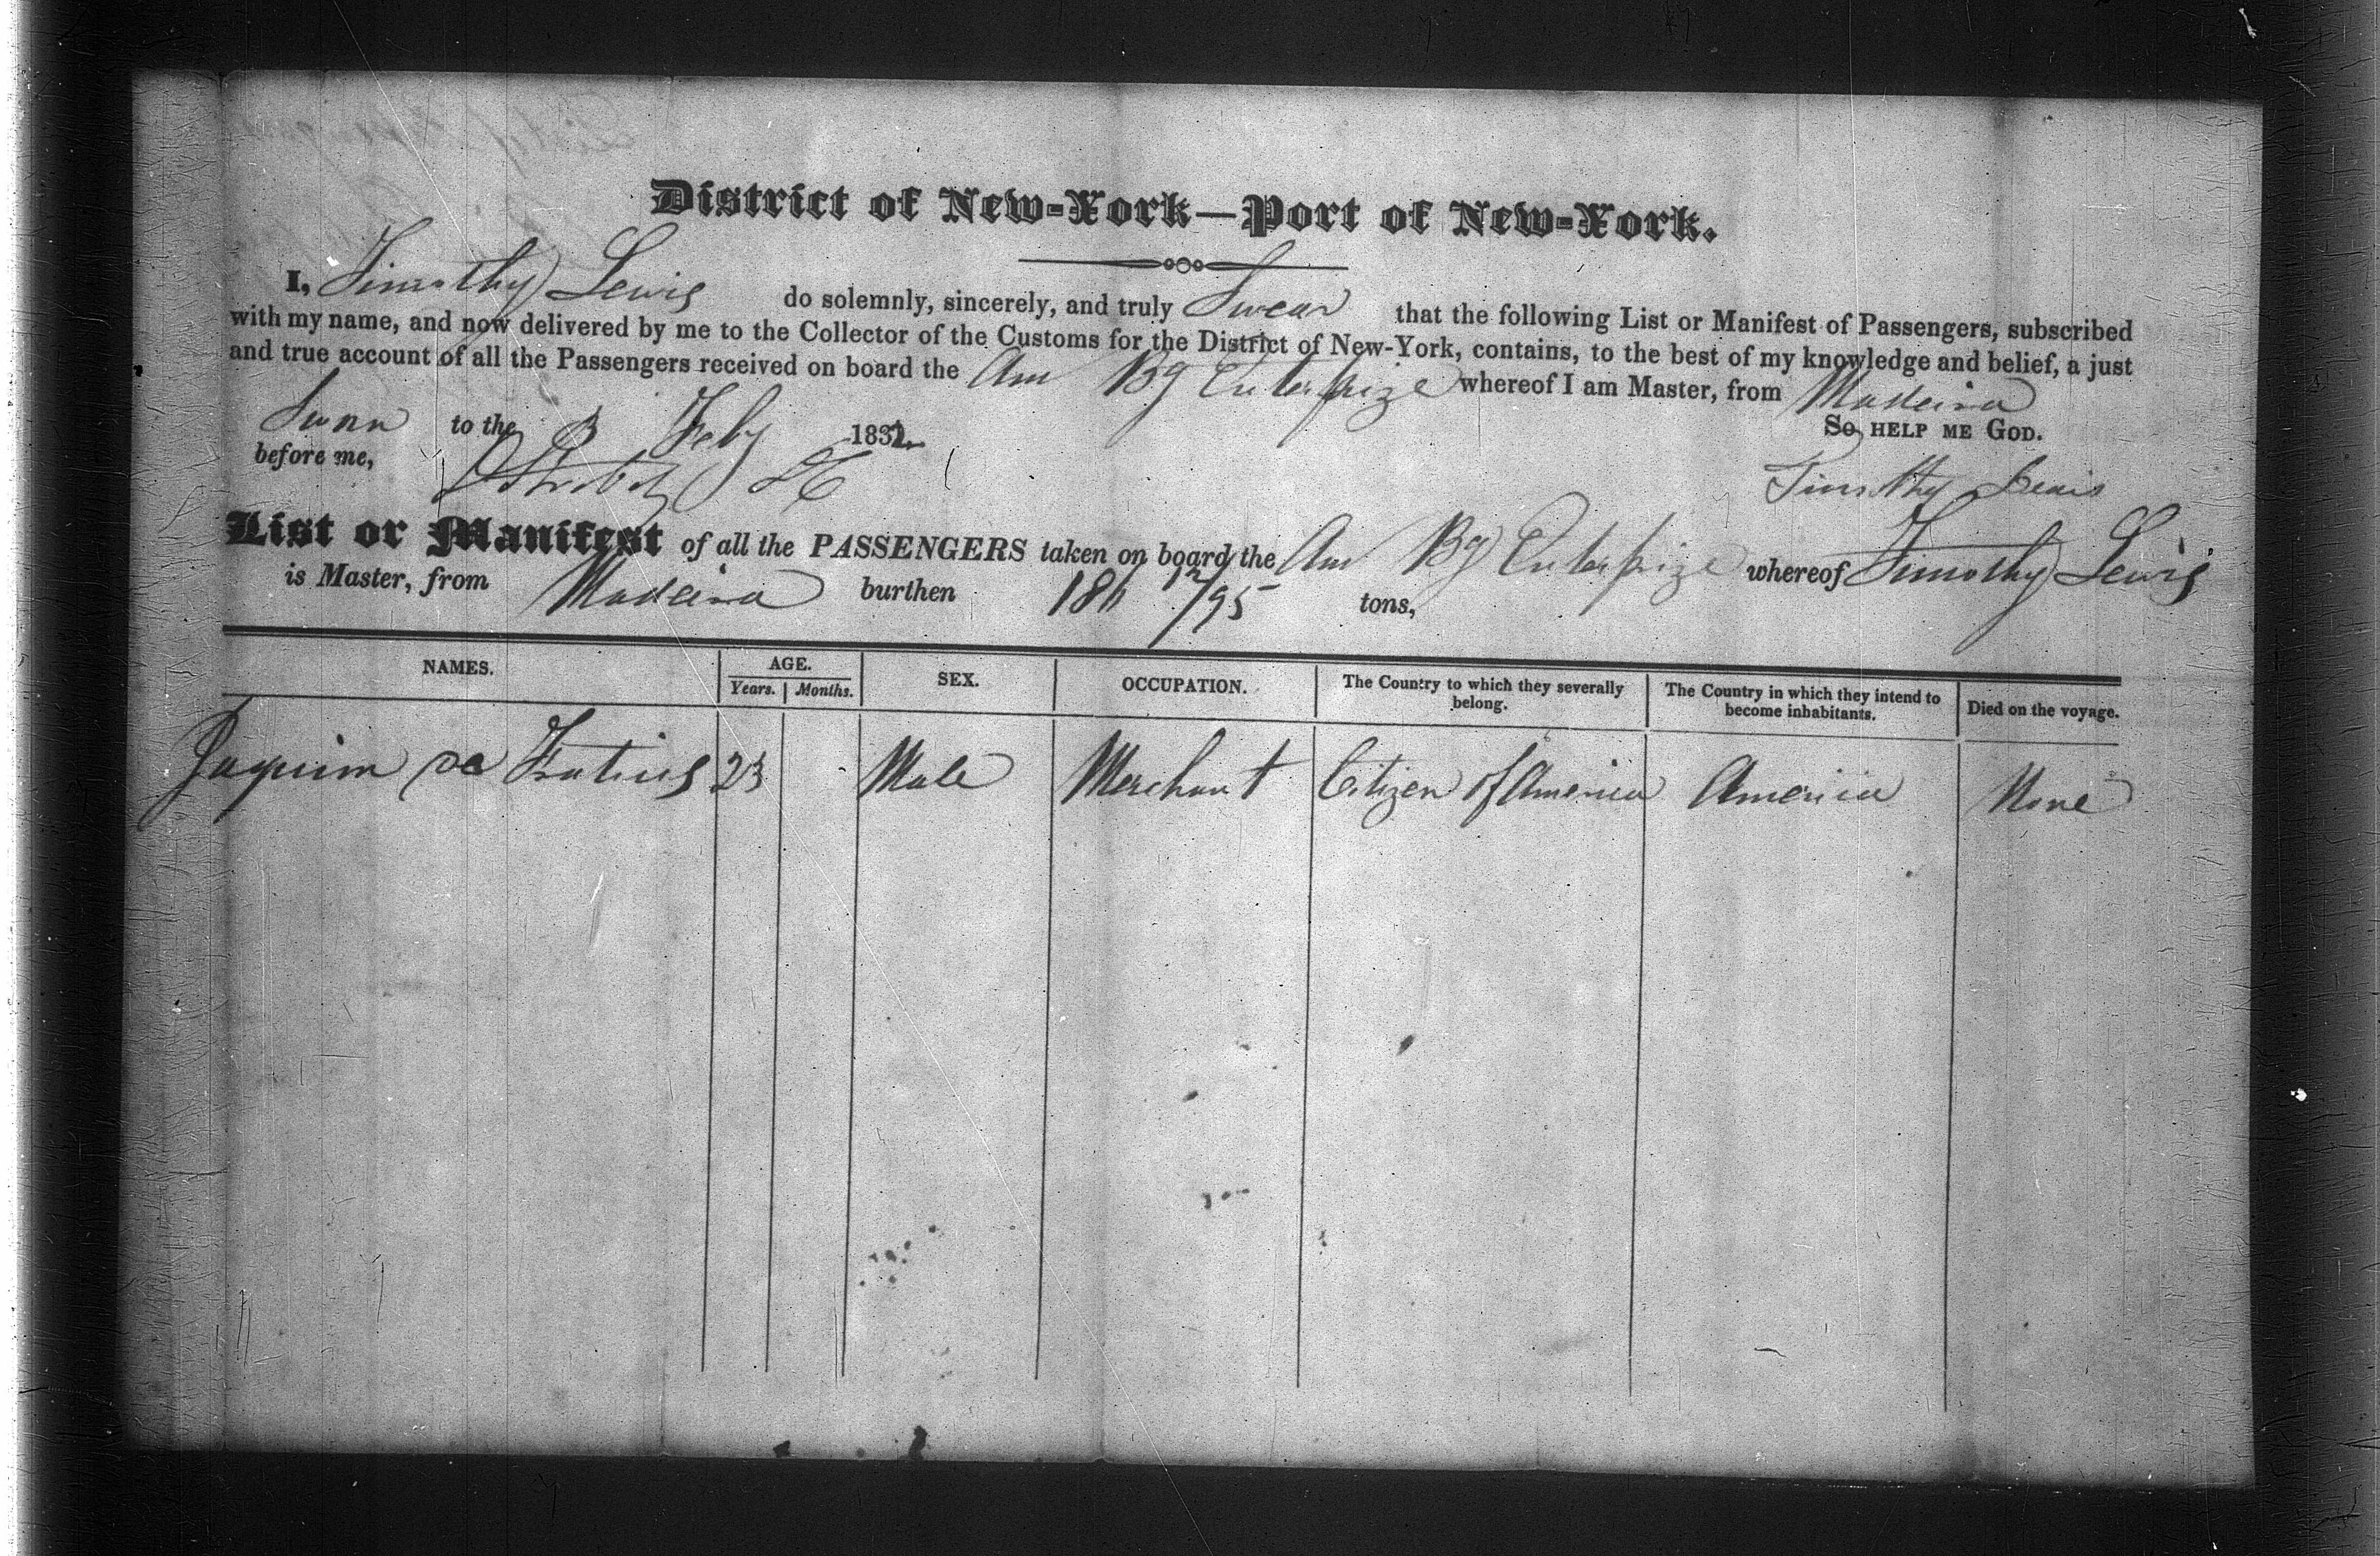 District of New-York—Port of New-York.
I, Timothy Lewis do solemnly, sincerely, and truly Swear that the following List or Manifest of Passengers, subscribed
with my name, and now delivered by me to the Collector of the Customs for the District of New-York, contains, to the best of my knowledge and belief, a just
and true account of all the Passengers received on board the Am Bg Enterprize whereof I am Master, from Madeira
Sworn to the 3 Feby 1832 So HELP ME GOD.
before me, Timothy Lewis
List or Manifest of all the PASSENGERS taken on board the Am Bg Enterprize whereof Timothy Lewis
is Master, from Madeira burthen tons,
NAMES. AGE. SEX. OCCUPATION. The Country to which they severally belong. The Country in which they intend to become inhabitants. Died on the voyage.
Years. Months.
Jaquim 23 Male Merchant Citizen of America America None